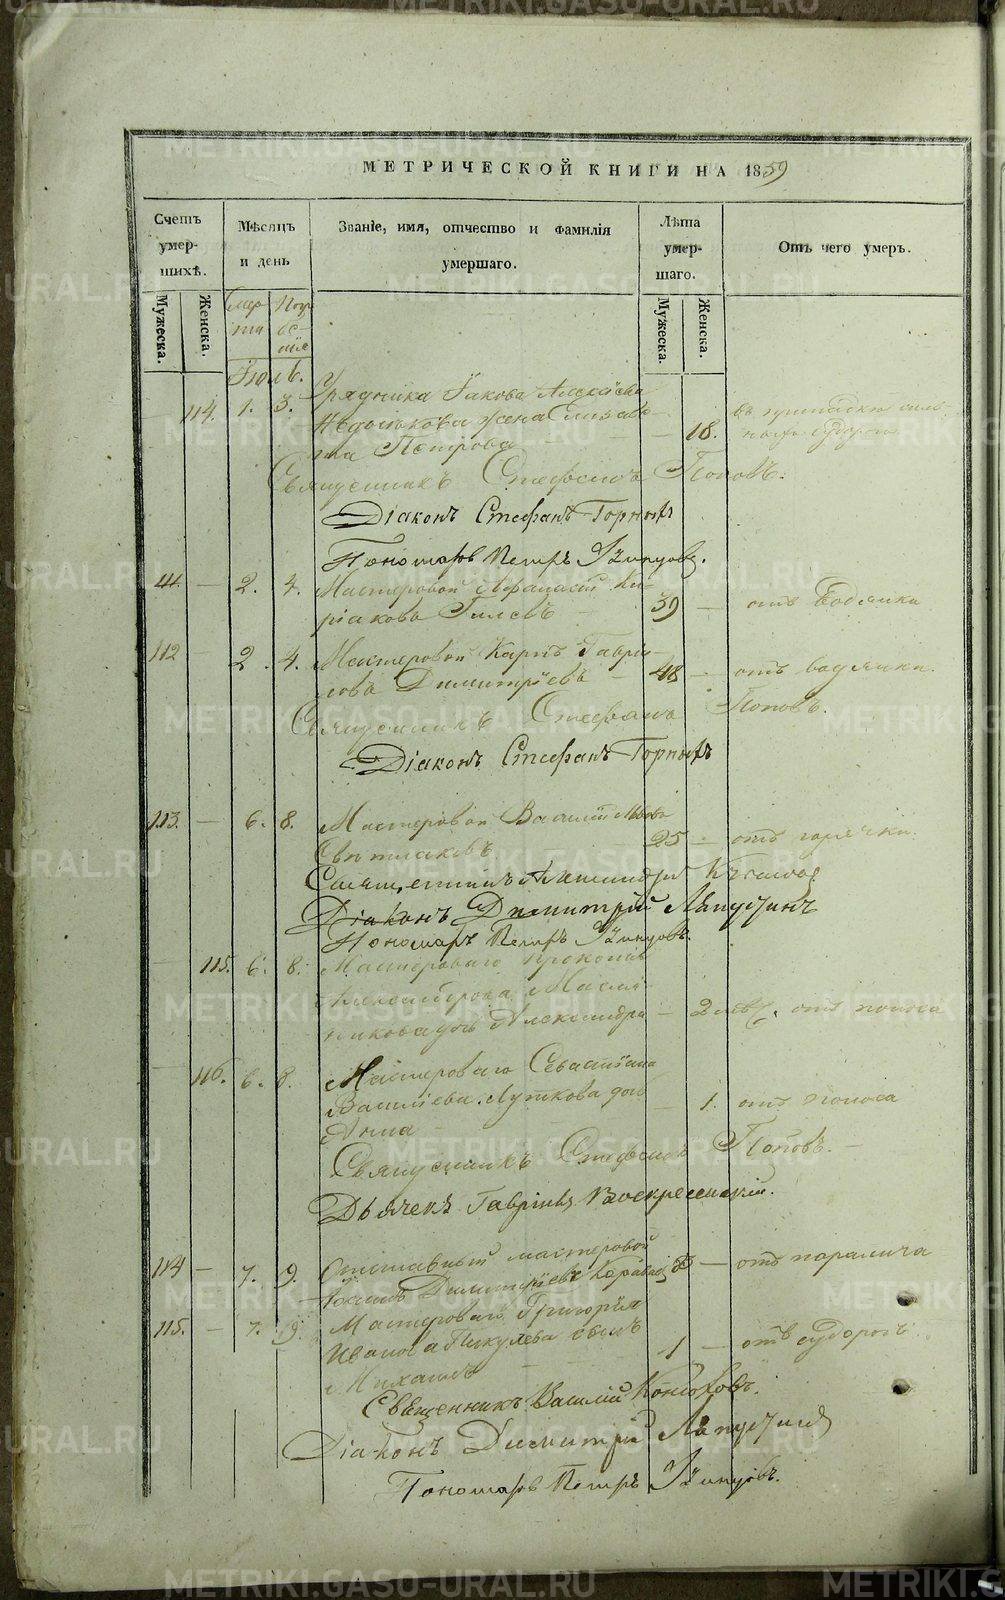 МЕТРИЧЕСКОЙ КНИГИ НА 1839
Счетъ умер-шихъ.
Мѣсяцъ и день
Званіе, имя, отчество и фамилія умершаго.
Лѣта умер-шаго.
Отъ чего умеръ.
Мужеска.
Женска.
Смер-ти
Погр-бе-нія
Мужеска.
Женска.
Іюль.
114. 1. 3. Урядника Іакова Алексѣева
жена Елизаве-
та Петрова 18.
Священникъ Стефанъ Поповъ.
Діаконъ Стефанъ Горныхъ
Пономарь Петръ
111. — 2. 4. Мастеровой Афанасій Ки-
ріаковъ Гилевъ 39 — отъ водянки
112 — 2. 4. Мастеровой Карпъ Гаври-
ловъ Димитріевъ — 48 — отъ водянки.
Священникъ Стефанъ Поповъ.
Діаконъ Стефанъ Горныхъ
113. — 6. 8. Мастеровой Василій
Свѣтлаковъ 25 — отъ горячки.
Священникъ
Діаконъ Димитрій Лапустинъ
Пономарь Петръ
115. 6. 8. Мастероваго
Александрова
дочь Александра — 2 отъ поноса
116. 6. 8. Мастероваго Севастіана
Василіева Лупкова дочь
Анна — 1. отъ поноса
Священникъ Стефанъ Поповъ.
Дьячекъ Гавріилъ Воскресенскій.
114 — 7. 9. Отставный мастеровой
Димитріевъ — отъ паралича
115. — 7. 9. Мастероваго Григорія
Иванова Пикулева сынъ
Михаилъ 1 — отъ судорогъ
Священникъ Василій Конюховъ.
Діаконъ Димитрій Лапустинъ
Пономарь Петръ
METRIKI.GASO-URAL.RU